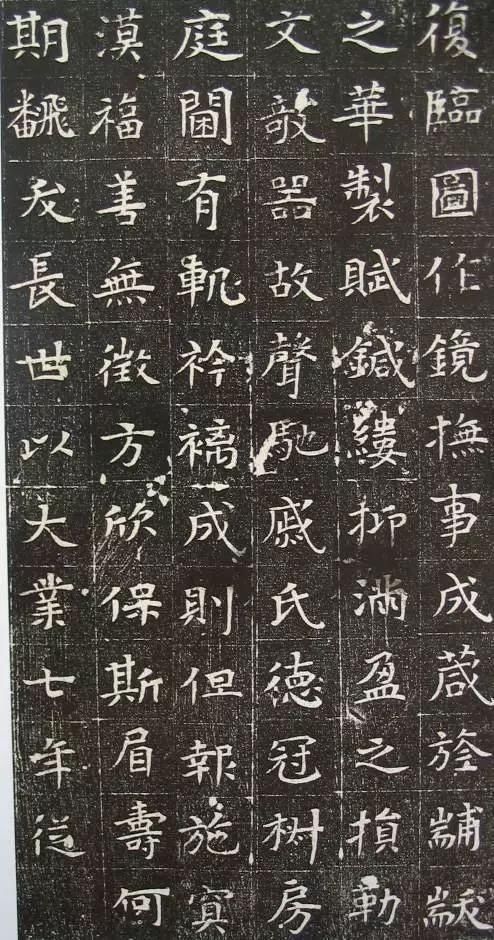 復臨圖作鏡撫事成葴於黼黻
之華製賦鍼縷抑滿盈之損勒
文欹器故聲馳戚氏德冠椒房
庭閫有軌衿褵成則但報施冥
漠福善無徵方欣保斯眉壽何
期飜夭長世以大業七年從